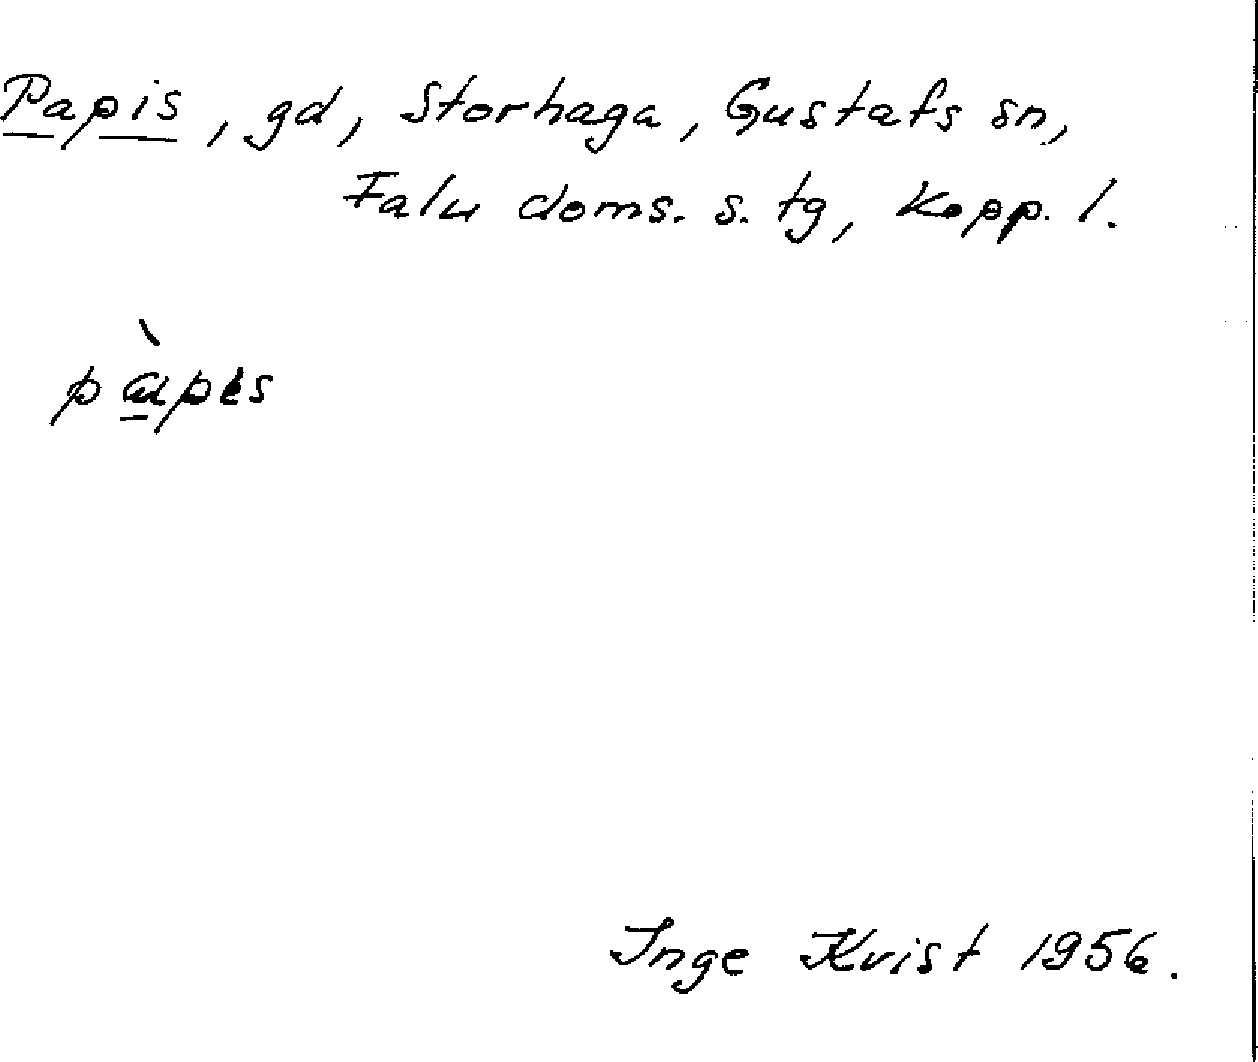 Papis, gd, Storhaga, Gustafs sn,
Falu doms. s. tg, Kopp. l.
pàpɩs
Inge Kvist 1956.